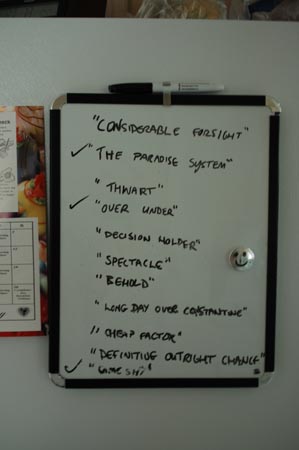 "CONSIDERABLE FORSIGHT"
✓ "THE PARADISE SYSTEM"
"THWART"
✓ "OVER UNDER"
"DECISION HOLDER"
"SPECTACLE"
"BEHOLD"
"LONG DAY OVER CONSTANTINE"
"CHEAP FACTOR"
"DEFINITIVE OUTRIGHT CHANCE"